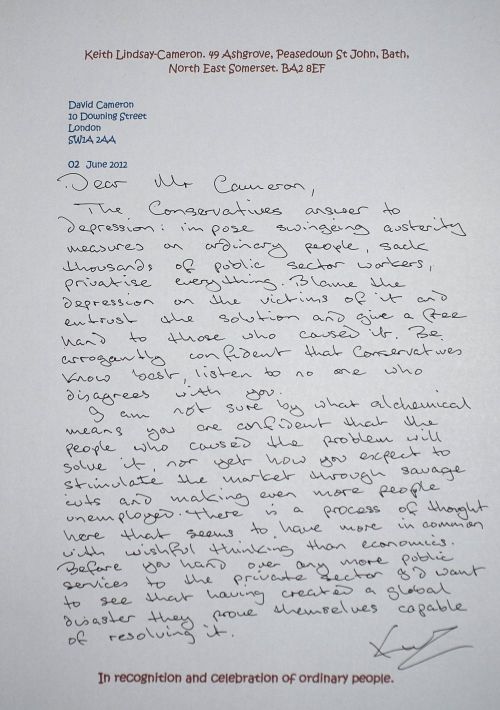 Keith Lindsay-Cameron. 49 Ashgrove, Peasedown St John, Bath,
North East Somerset. BA2 8EF
David Cameron
10 Downing Street
London
SW1A 2AA
02 June 2012
Dear Mr Cameron,
The Conservatives answer to
depression: impose swingeing austerity
measures on ordinary people, sack
thousands of public sector workers,
privatise everything. Blame the
depression on the victims of it and
entrust the solution and give a free
hand to those who caused it. Be
arrogantly confident that Conservatives
know best, listen to no one who
disagrees with you.
I am not sure by what alchemical
means you are confident that the
people who caused the problem will
solve it, nor yet how you expect to
stimulate the market through savage
cuts and making even more people
unemployed. There is a process of thought
here that seems to have more in common
with wishful thinking than economics.
Before you hand over any more public
services to the private sector I'd want
to see that having created a global
disaster they prove themselves capable
of resolving it.
In recognition and celebration of ordinary people.